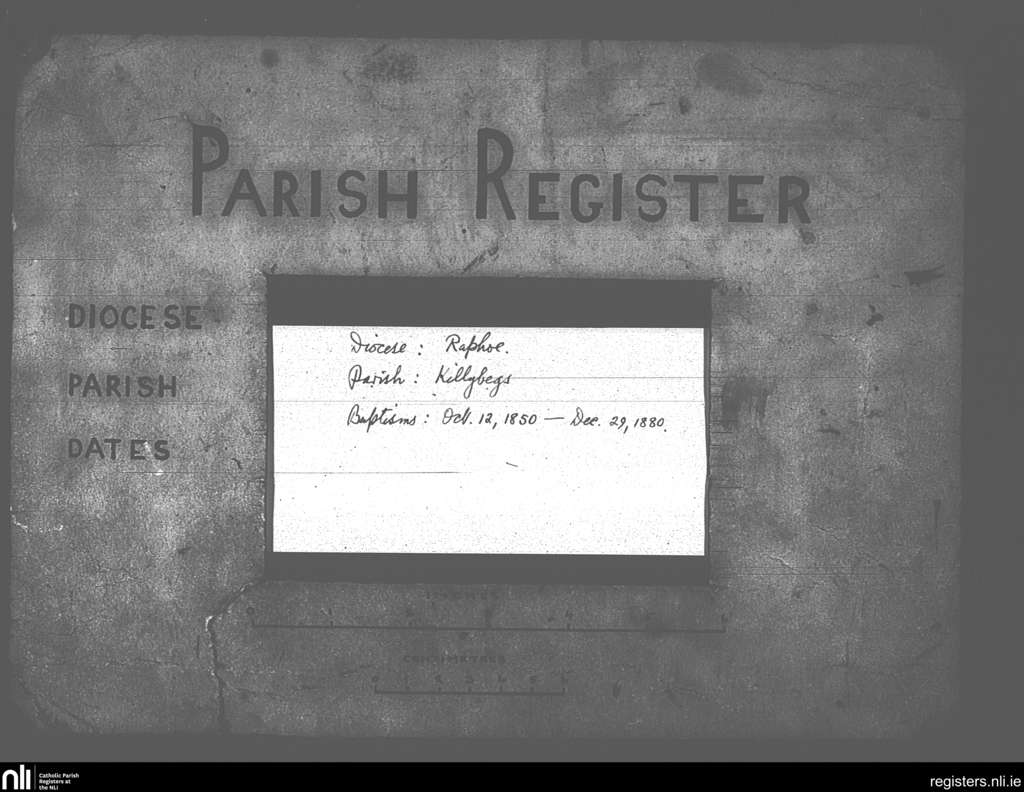 PARISH REGISTER
DIOCESE
PARISH
DATES
Diocese : Raphoe.
Parish : Killybegs
Baptisms : Oct. 12, 1850 — Dec. 29, 1880.
CENTIMETRES
nli
Catholic Parish
Registers at
the NLI
registers.nli.ie